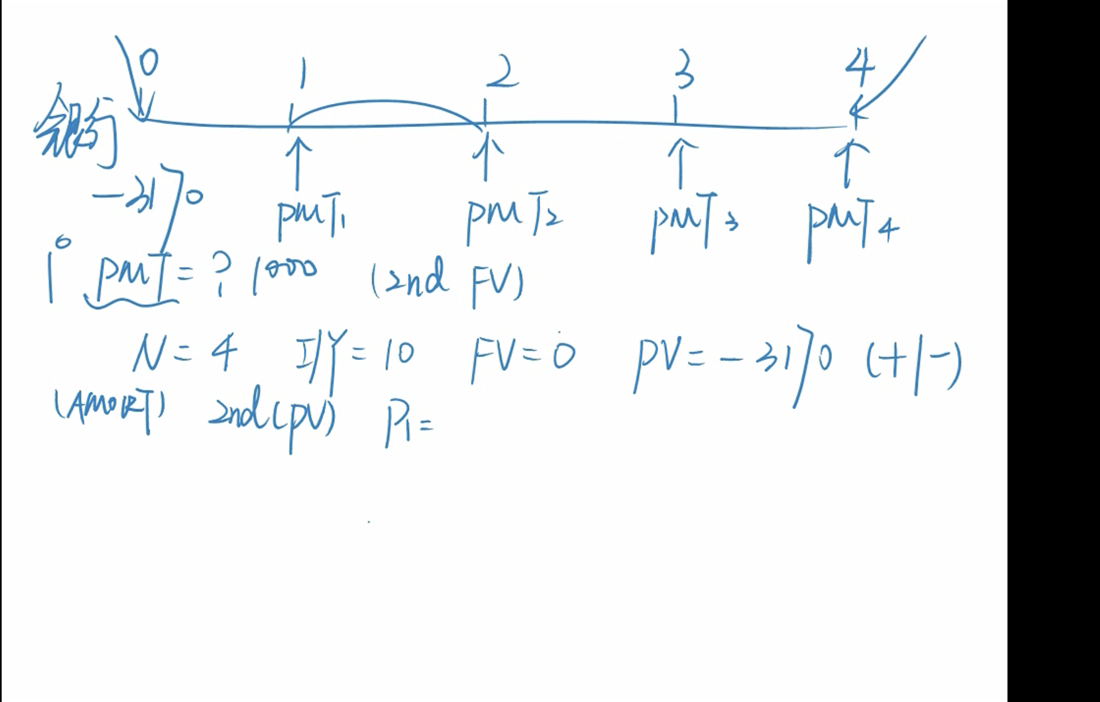 0 1 2 3 4
银行
-3170
PMT1 PMT2 PMT3 PMT4
i PMT = ? 1000 (2nd FV)
N = 4 I/Y = 10 FV = 0 PV = -3170 (+/-)
(AMORT) 2nd(PV) P1 =